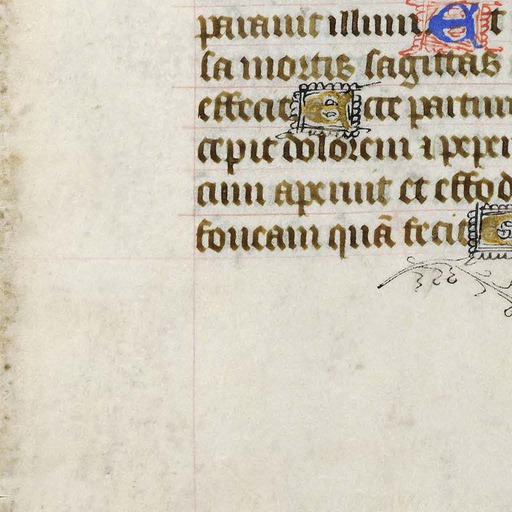 parauit illum. Et
sa mortis sagittas
effecit Ecce partur
cepit dolorem ⁊ peper
cum aperuit et effod
foueam quā fecit